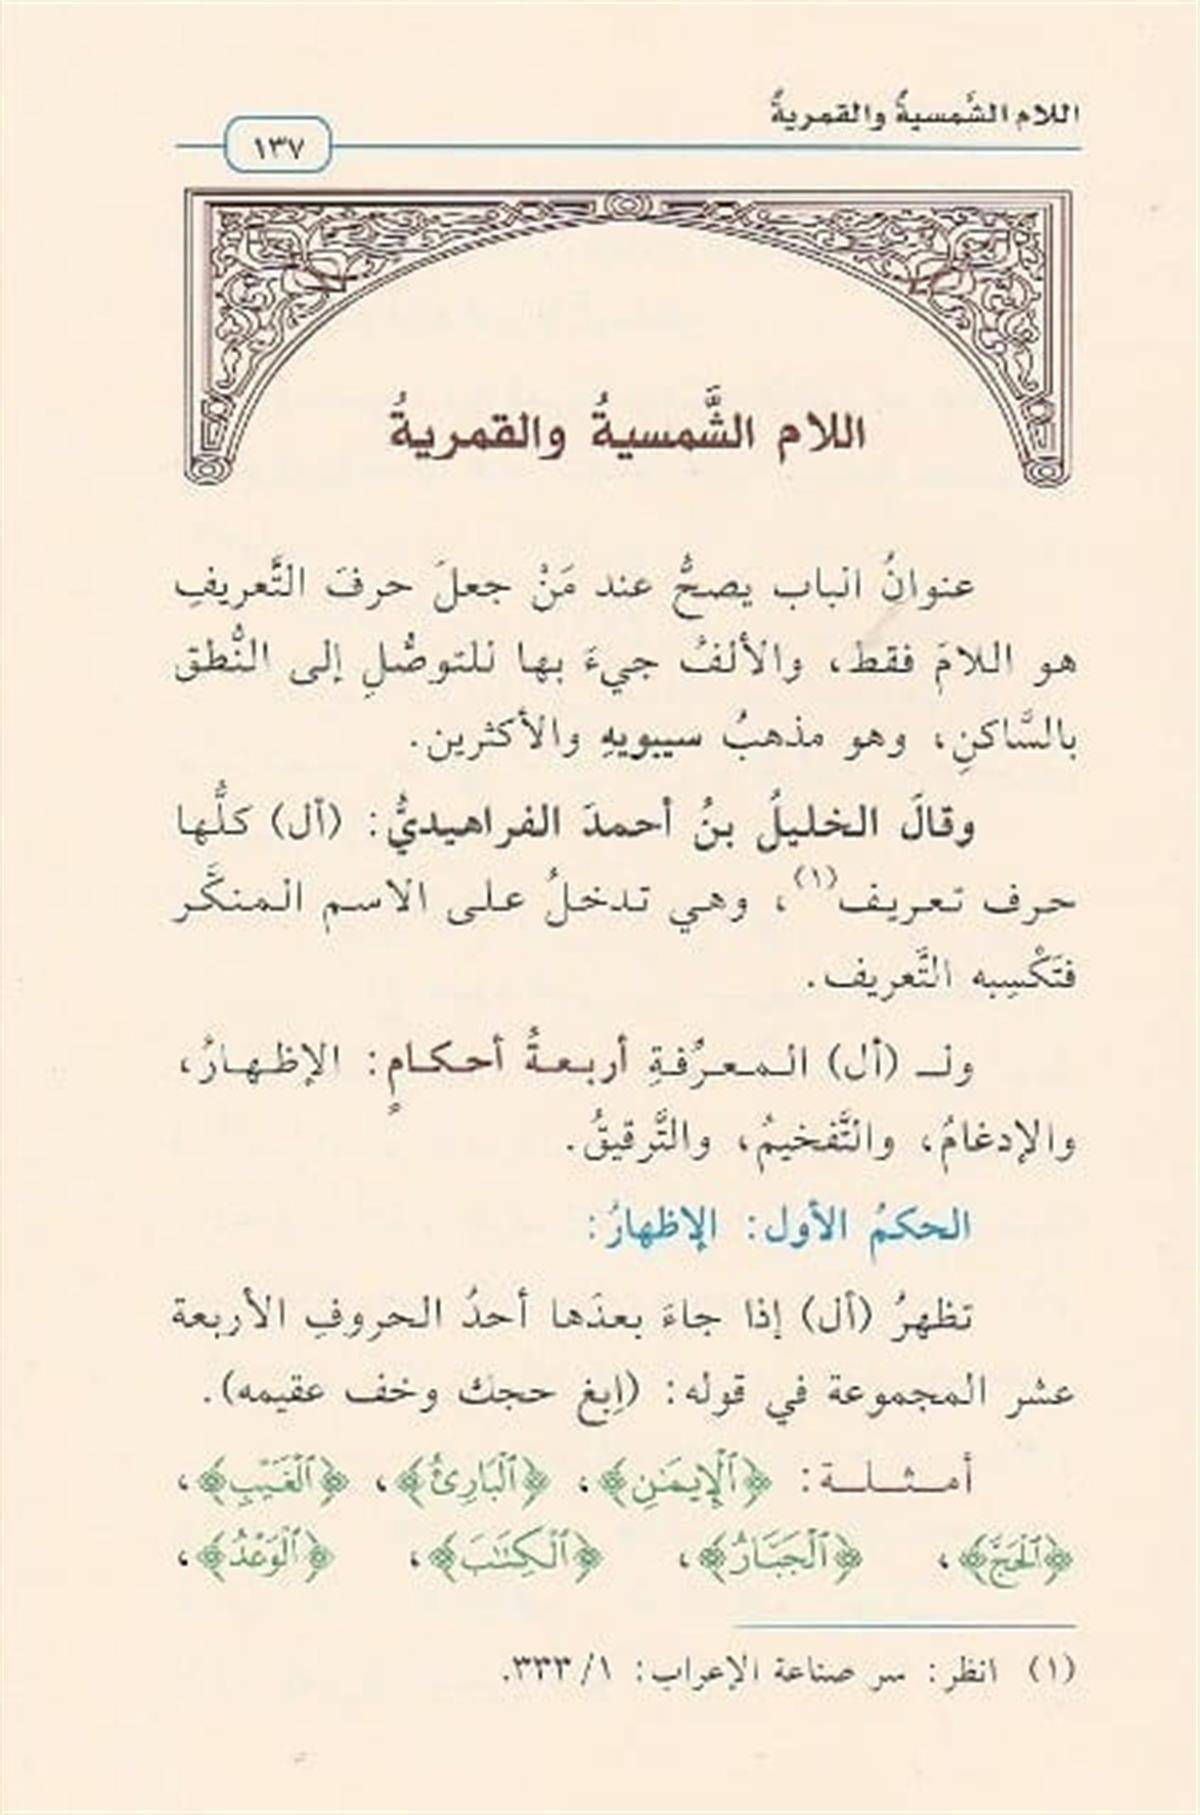 اللام الشَّمسيةُ والقمريةُ
١٣٧
اللام الشَّمسيةُ والقمريةُ
عنوانُ الباب يصحُّ عند مَنْ جعلَ حرفَ التَّعريفِ
هو اللامَ فقط، والألفُ جيءَ بها للتوصُّلِ إلى النُّطق
بالسَّاكنِ، وهو مذهبُ سيبويهِ والأكثرين.
وقالَ الخليلُ بنُ أحمدَ الفراهيديُّ: (أل) كلُّها
حرف تعريف(١)، وهي تدخلُ على الاسم المنكَّر
فتَكْسِبه التَّعريف.
ولـ (أل) المعرِّفةِ أربعةُ أحكامٍ: الإظهارُ،
والإدغامُ، والتَّفخيمُ، والتَّرقيقُ.
الحكمُ الأول: الإظهارُ:
تظهرُ (أل) إذا جاءَ بعدَها أحدُ الحروفِ الأربعة
عشر المجموعة في قوله: (اِبغ حجك وخف عقيمه).
أمثلة: ﴿ٱلْإِيمَٰنِ﴾، ﴿ٱلْبَارِئُ﴾، ﴿ٱلْغَيْبِ﴾،
﴿ٱلْحَجَّ﴾، ﴿ٱلْجَبَّارُ﴾، ﴿ٱلْكِتَٰبَ﴾، ﴿ٱلْوَعْدُ﴾،
(١) انظر: سر صناعة الإعراب: ١/ ٣٣٣.